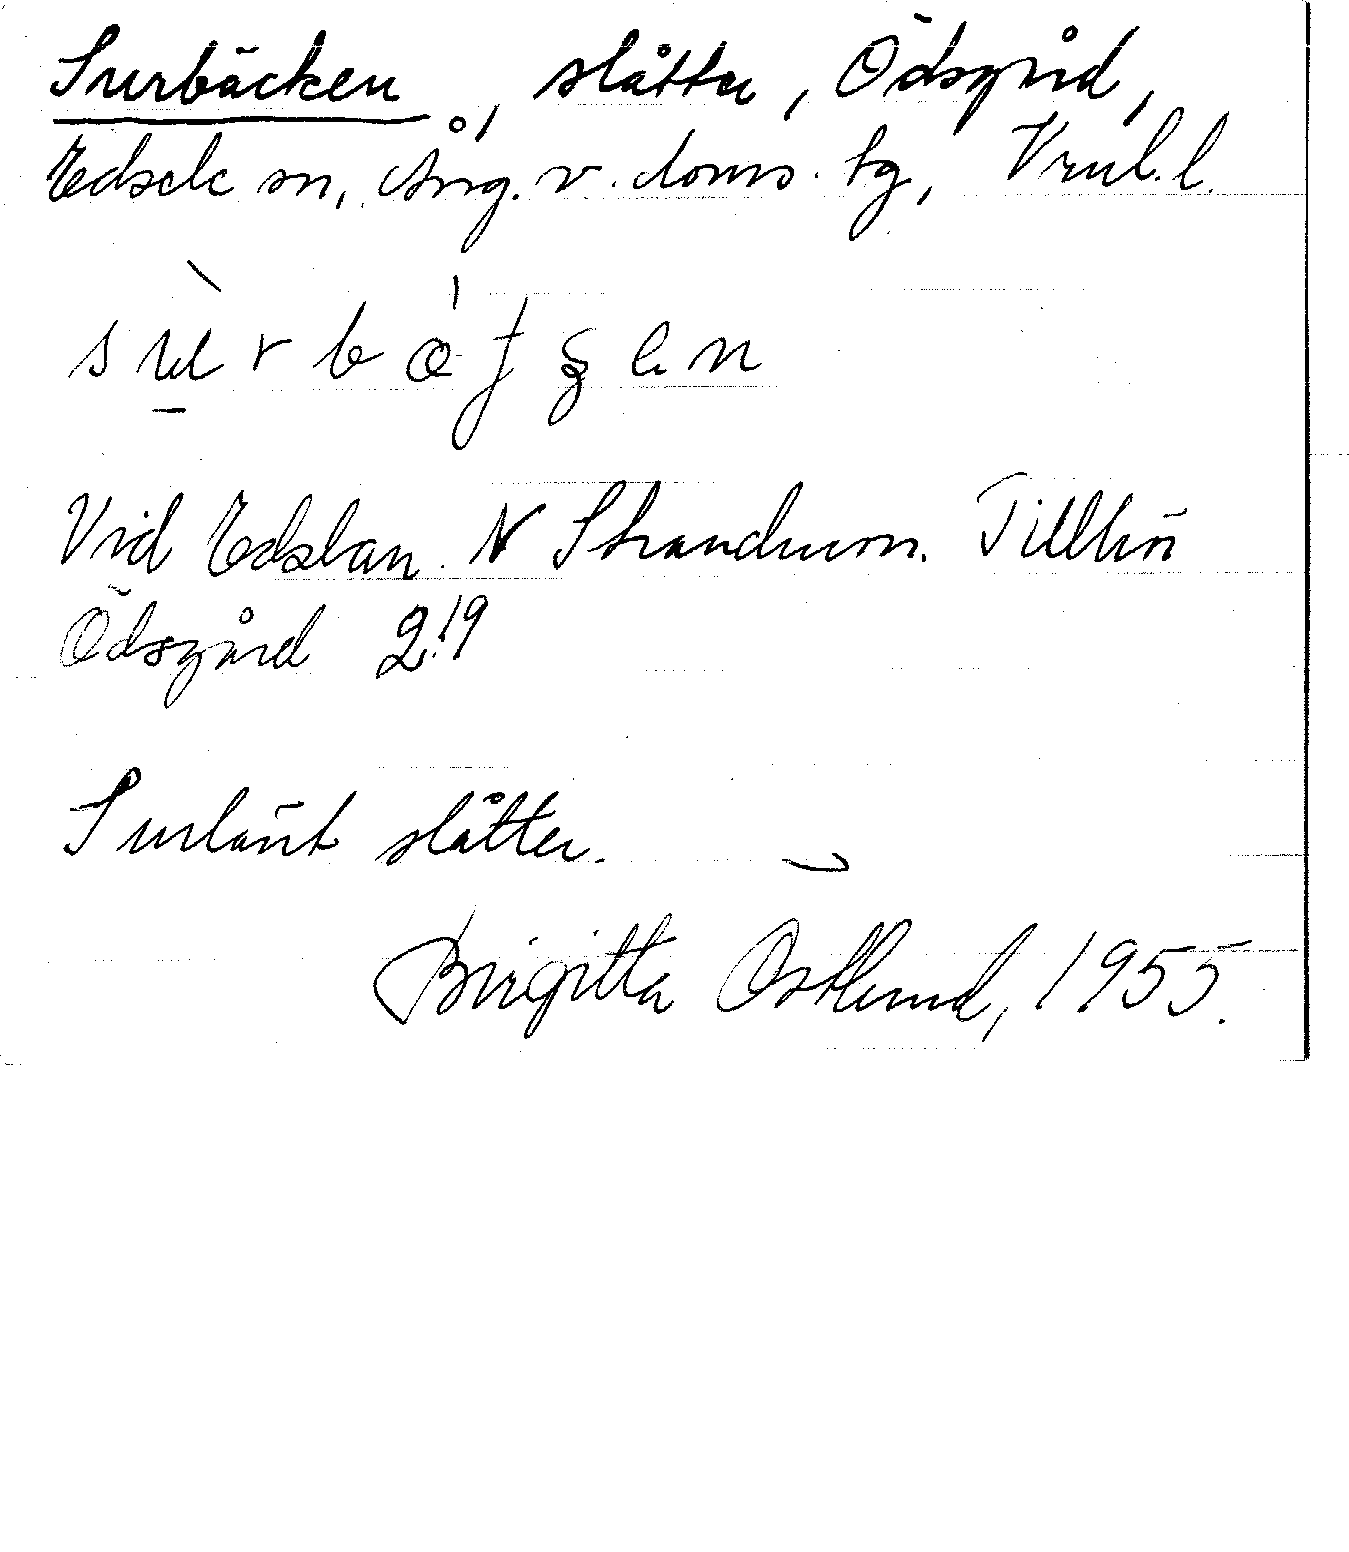 Surbäcken, slåtter, Ödsgård,
Edsele sn, Ång. v. doms. tg, Vrnl. l.
Vid Edslan. N Strandmon. Tillhör
Ödsgård 2:19
Surlänt slåtter.
Birgitta Östlund, 1955.